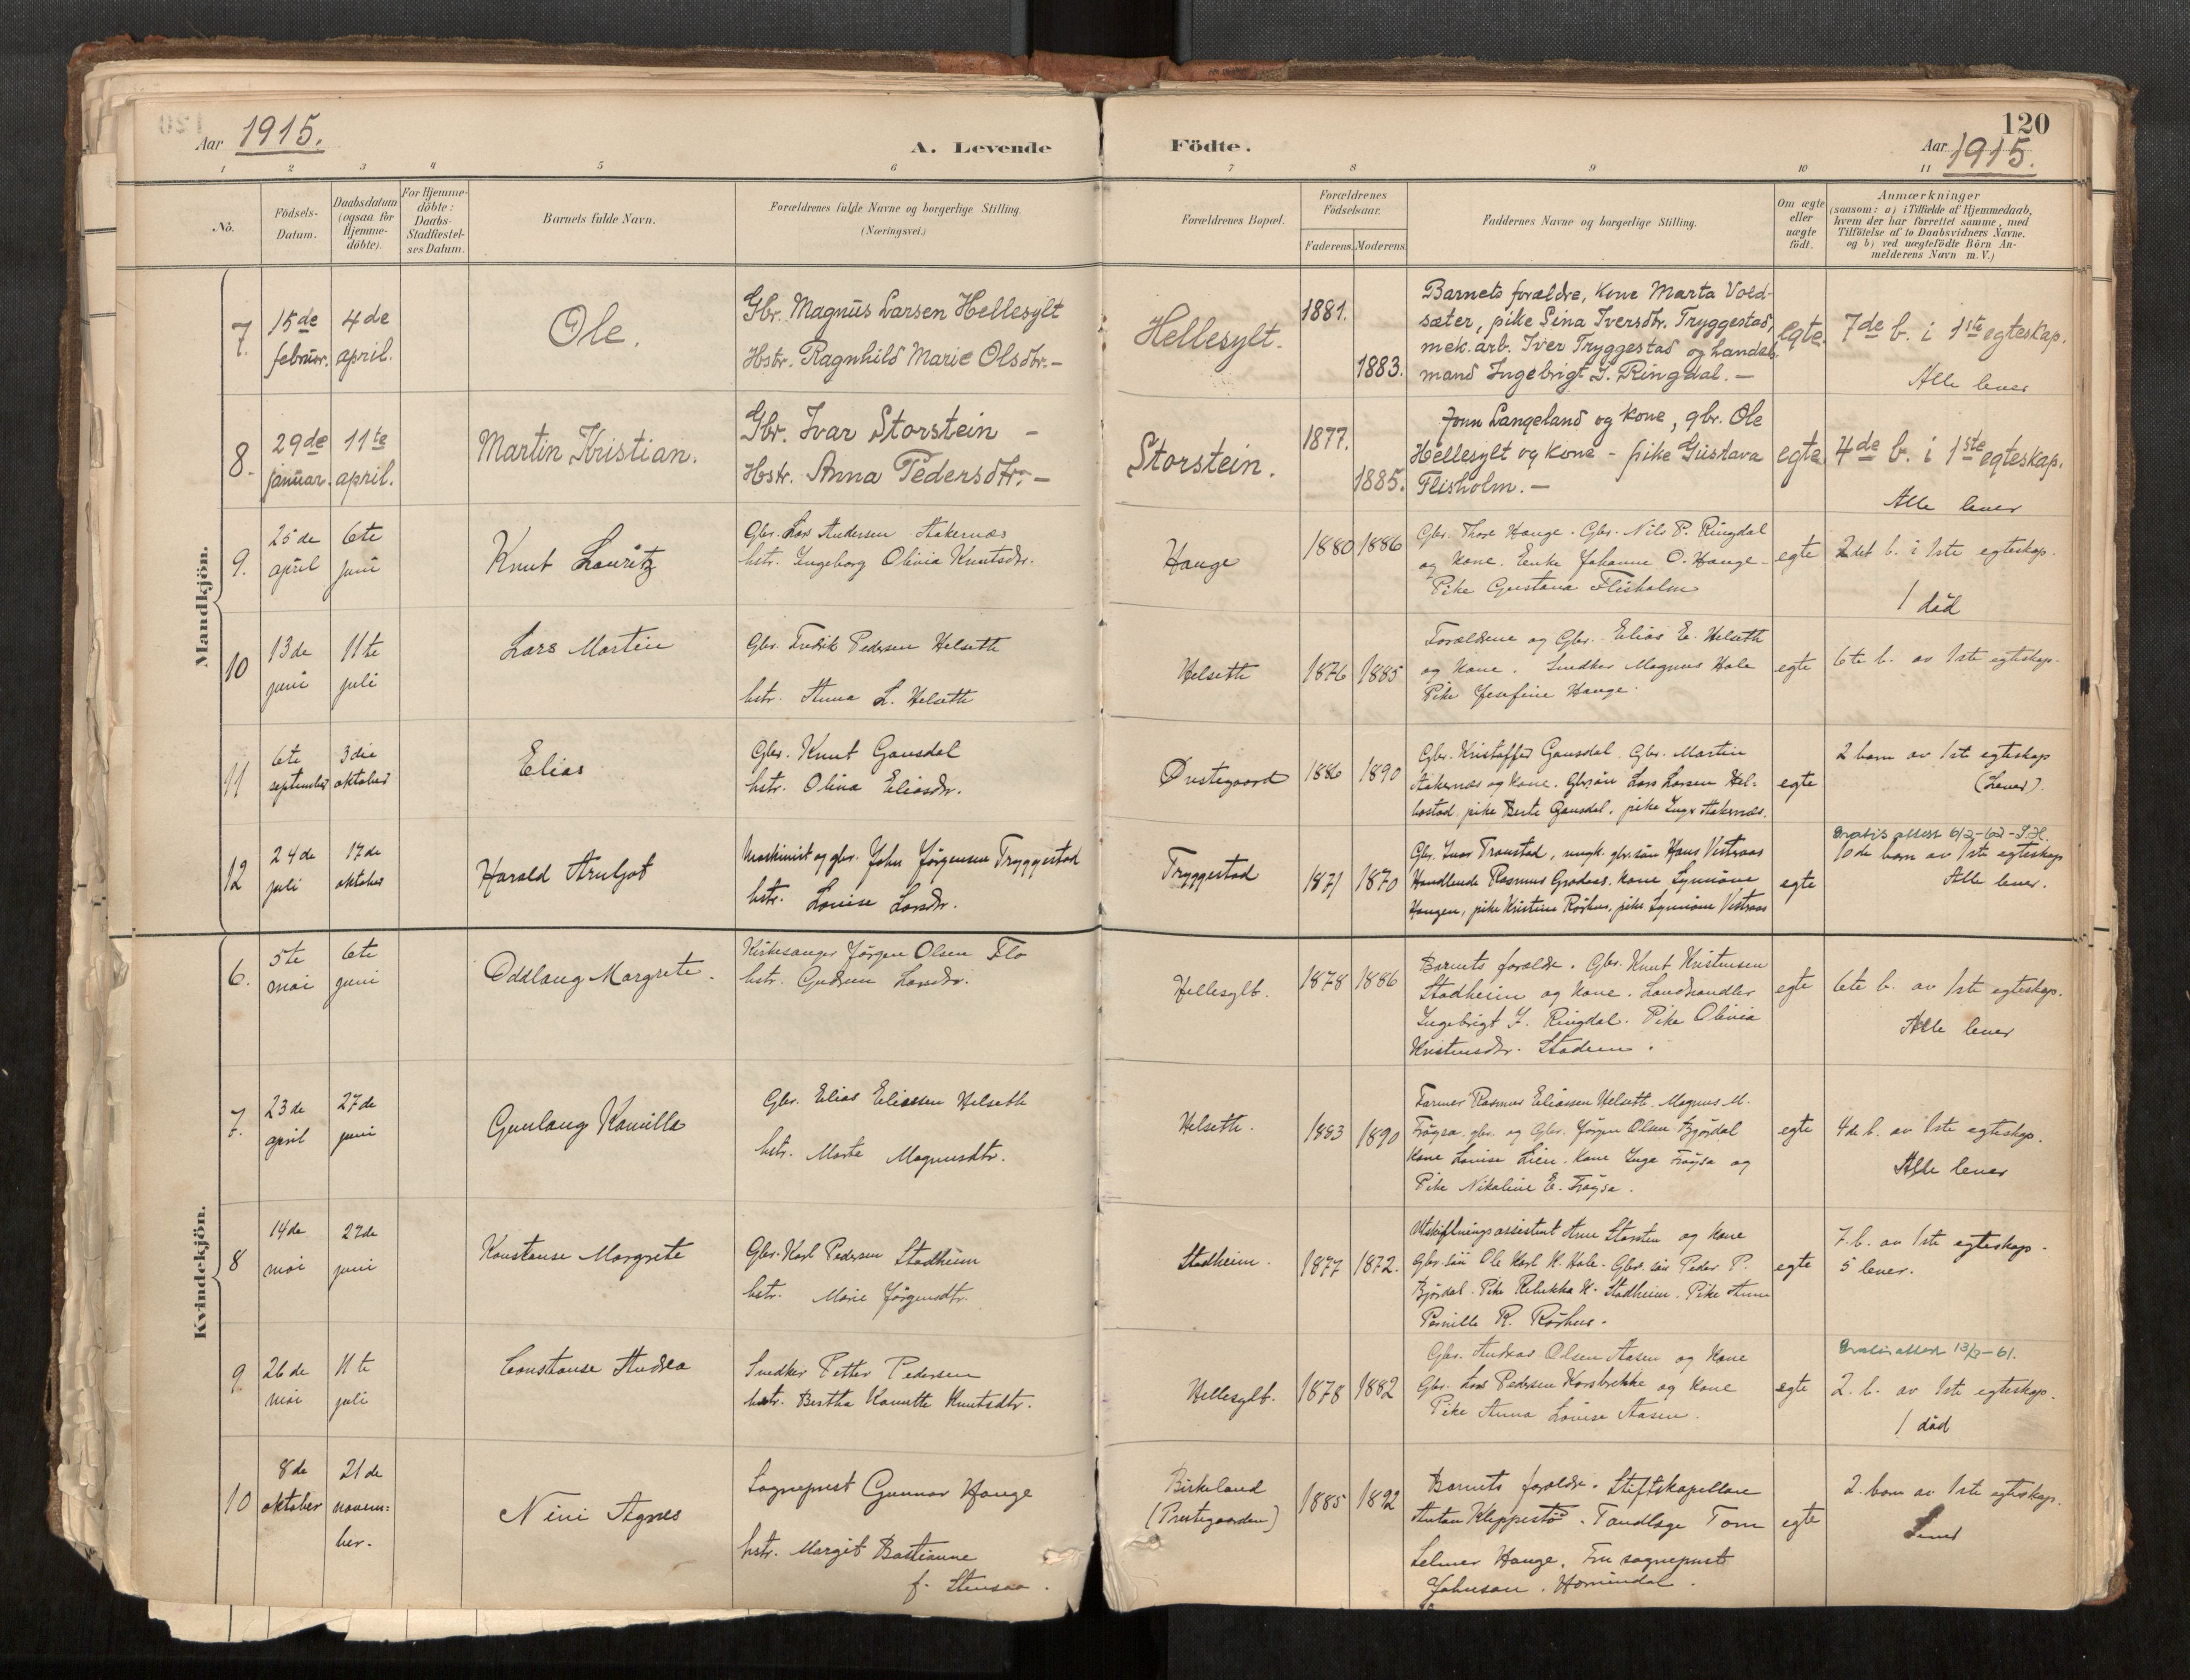 120
Aar 1915.
A. Levende Födte.
Aar 1915.
1 2 3 4 5 6 7 8 9 10 11
No.
Födsels-
Datum.
Daabsdatum
(ogsaa for
Hjemme-
döbte).
For Hjemme-
döbte:
Daabs-
Stadfæstel-
ses Datum.
Barnets fulde Navn.
Forældrenes fulde Navne og borgerlige Stilling.
(Næringsvei.)
Forældrenes Bopæl.
Forældrenes
Födselsaar.
Faderens. Moderens.
Faddernes Navne og borgerlige Stilling.
Om ægte
eller
uægte
födt.
Anmærkninger
(saasom: a) i Tilfælde af Hjemmedaab,
hvem der har forrettet samme, med
Tilföielse af to Daabsvidners Navne.
og b) ved uægtefödte Börn An-
melderens Navn m. V.)
Mandkjön.
7.
15de
februar.
4de
april.
Ole.
Gbr. Magnus Larsen Hellesylt
Hstr. Ragnhild Marie Olsdtr. –
Hellesylt.
1881.
1883.
Barnets forældre, kone Marta Vold-
sæter, pike Sina Iversdtr. Tryggestad,
mek. arb. Iver Tryggestad og handels
mand Ingebrigt J. Ringdal. –
egte.
7de b. i 1ste egteskap.
Alle lever
8.
29de
januar.
11te
april.
Martin Kristian.
Gbr. Ivar Storstein –
Hstr. Anna Pedersdtr. –
Storstein.
1877.
1885.
Jonn Langeland og kone, gbr. Ole
Hellesylt og kone – pike Gustava
Flisholm. –
egte.
4de b. i 1ste egteskap.
Alle lever
9.
25de
april
6te
juni
Knut Lauritz
Gbr. Lars Andersen Stakernæs
hstr. Ingeborg Olivia Knutsdtr.
Hauge
1880
1886
Gbr. Thore Hauge. Gbr. Nils P. Ringdal
og kone. Enke Johanne O. Hauge.
Pike Gustava Flisholm
egte
2det b. i 1ste egteskap.
1 död
10
13de
juni
11te
juli
Lars Martin
Gbr. Fredrik Pedersen Helseth
hstr. Anna L. Helseth
Helseth
1876
1885
Forældrene og Gbr. Elias E. Helseth
og kone. Snedker Magnus Hole
Pike Josefine Hauge.
egte
6te b. av 1ste egteskap.
11
6te
september
3die
oktober
Elias
Gbr. Knut Gausdal
hstr. Olina Eliasdtr.
Ovstegaard
1886
1890
Gbr. Kristoffer Gausdal. Gbr. Martin
Stakernæs og kone. Gbr.søn Lars Larsen Hel-
bostad, pike Berte Gausdal, pike Inga Stakernæs.
egte
2 barn av 1ste egteskap
(Lever).
12
24de
juli
17de
oktober
Harald Arnljot
Maskinist og gbr. John Jörgensen Tryggestad
hstr. Lovise Larsdtr.
Tryggestad
1871
1870
Gbr. Ivar Tronstad, ungk. gbr.sön Hans Vestraas
Handlende Rasmus Gradaas. kone Synnöve
Haugen, pike Kristine Röyhus, pike Synnöve Vestraas
egte
Gratis attest 6/2-62 -
10de barn av 1ste egteskap
Alle lever.
Kvindekjön.
6.
5te
mai
6te
juni
Oddlaug Margrete.
Kirkesanger Jörgen Olsen Flo
hstr. Gudrun Larsdtr.
Hellesylt.
1878
1886
Barnets forældre. Gbr. Knut Kristensen
Stadheim og kone. Landhandler
Ingebrigt J. Ringdal. Pike Olivia
Kristensdtr. Stadem.
egte
6te b. av 1ste egteskap.
Alle lever
7.
23de
april
27de
juni
Gunlaug Kamilla
Gbr. Elias Eliassen Helseth
hstr. Marta Magnusdtr.
Helseth.
1883
1890
Farmer Rasmus Eliassen Helseth. Magnus M.
Fröysa. gbr. og Gbr. Jörgen Olsen Björdal
Kone Lovise Lien. Kone Inga Fröysa og
Pike Nikoline E. Fröysa.
egte
4de b. av 1ste egteskap.
Alle lever
8
14de
mai
27de
juni
Konstanse Margrete
Gbr. Karl Pedersen Stadheim
hstr. Marie Jörgensdtr.
Stadheim.
1877
1872.
Utskiftningsassistent Arne Storsten og kone
Gbr. sön Ole Karl K. Hole. Gbr. sön Peder P.
Björdal. Pike Relikka K. Stadheim. Pike Anne
Pernille R. Röyhus.
egte
7. b. av 1ste egteskap.
5 lever.
9
26de
mai
11te
juli
Constanse Andrea
Snedker Petter Pedersen
hstr. Bertha Kanutte Knutsdtr.
Hellesylt.
1878
1882
Gbr. Andreas Olsen Aasen og kone
Gbr. Lars Pedersen Korsbrekke og kone
Pike Anna Lovise Aasen.
egte
Gratis attest 13/3-61.
2. b. av 1ste egteskap.
1 död
10
8de
oktober
21de
novem=
ber.
Nini Agnes
Sogneprest Gunnar Hauge
hstr. Margit Bastianne
f. Stensaa.
Birkeland
(Prestegaarden)
1885
1892
Barnets forældre. Stiftskapellan
Anton Kleppestö. Tandlæge Tom
Selmer Hauge. Fru sogneprest
Johnson. Hornindal.
egte
2. barn av 1ste egteskap.
Lever